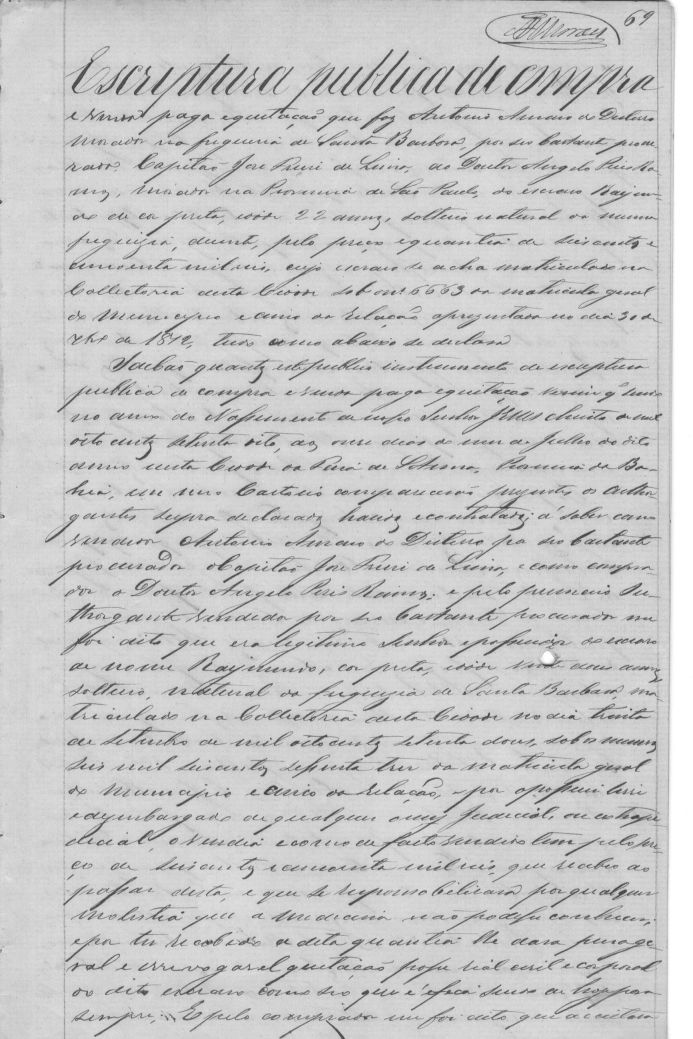 69
AMoraes
Escriptura publica de compra
e venda paga e quitação que faz Antonio Amaro do Disterro
morador na freguezia de Santa Barbora, por seo bastante procu
rador Capitão José Freire de Lima, ao Doutor Angelo Pires Ra
mos, morador na Provincia de São Paulo, do escravo Raymun
do de cor preta, idade 22 annos, solteiro natural da mesma
freguezia, pelo preço e quantia de seiscentos e
cincoenta mil reis, cujo escravo se acha matriculado na
Collectoria desta Cidade sob nº 6663 da matricula geral
do Municipio e cinco da relação apresentada no dia 30 de
7bro de 1872, tudo como abaixo se declara
Saibão quantos este publico instrumento de escriptura
publica de compra e venda paga e quitação virem que sendo
no anno do Nassimento de nosso Senhor JESUS Christo de mil
oito centos setenta oito, aos onze dias do mez de Julho do dito
anno nesta Cidade da Feira de Santa Anna, Provincia da Ba
hia, em meo Cartorio comparecerão prezentes os outhor
gantes supra declarados havidos e contratados; á saber como
vendedor Antonio Amaro do Disterro por seo bastante
procurador o Capitão José Freire de Lima, e como compra
dor o Doutor Angelo Pires Ramos; e pelo primeiro Ou
thorgante vendedor por seo bastante procurador me
foi dito que era legitimo Senhor e possuidor do escravo
de nome Raymundo, cor preta, idade vinte dous annos
solteiro, natural da freguezia de Santa Barbara ma
triculado na Collectoria desta Cidade no dia trinta
de Setembro de mil oito centos setenta dous, sob o numero
seis mil seiscentos sessenta tres da matricula geral
do Municipio e cinco da relação, e por o possuir livre
e dezembargado de qualquer onus judicial, ou extraju
dicial, o vendia e como de facto vendido tem pelo pre
ço de seiscentos e cincoenta mil reis, que recebeo ao
passar desta, e que se responsabilisara por qualquer
molestia que a medicina não podesse conhecer;
e por ter recebido a dita quantia lhe dava plena ge
ral e irrevogavel quitação posse real civil e corporal
do dito escravo como seo que é e fica sendo de hoje para
sempre; E pelo comprador me foi dito, que aceitava